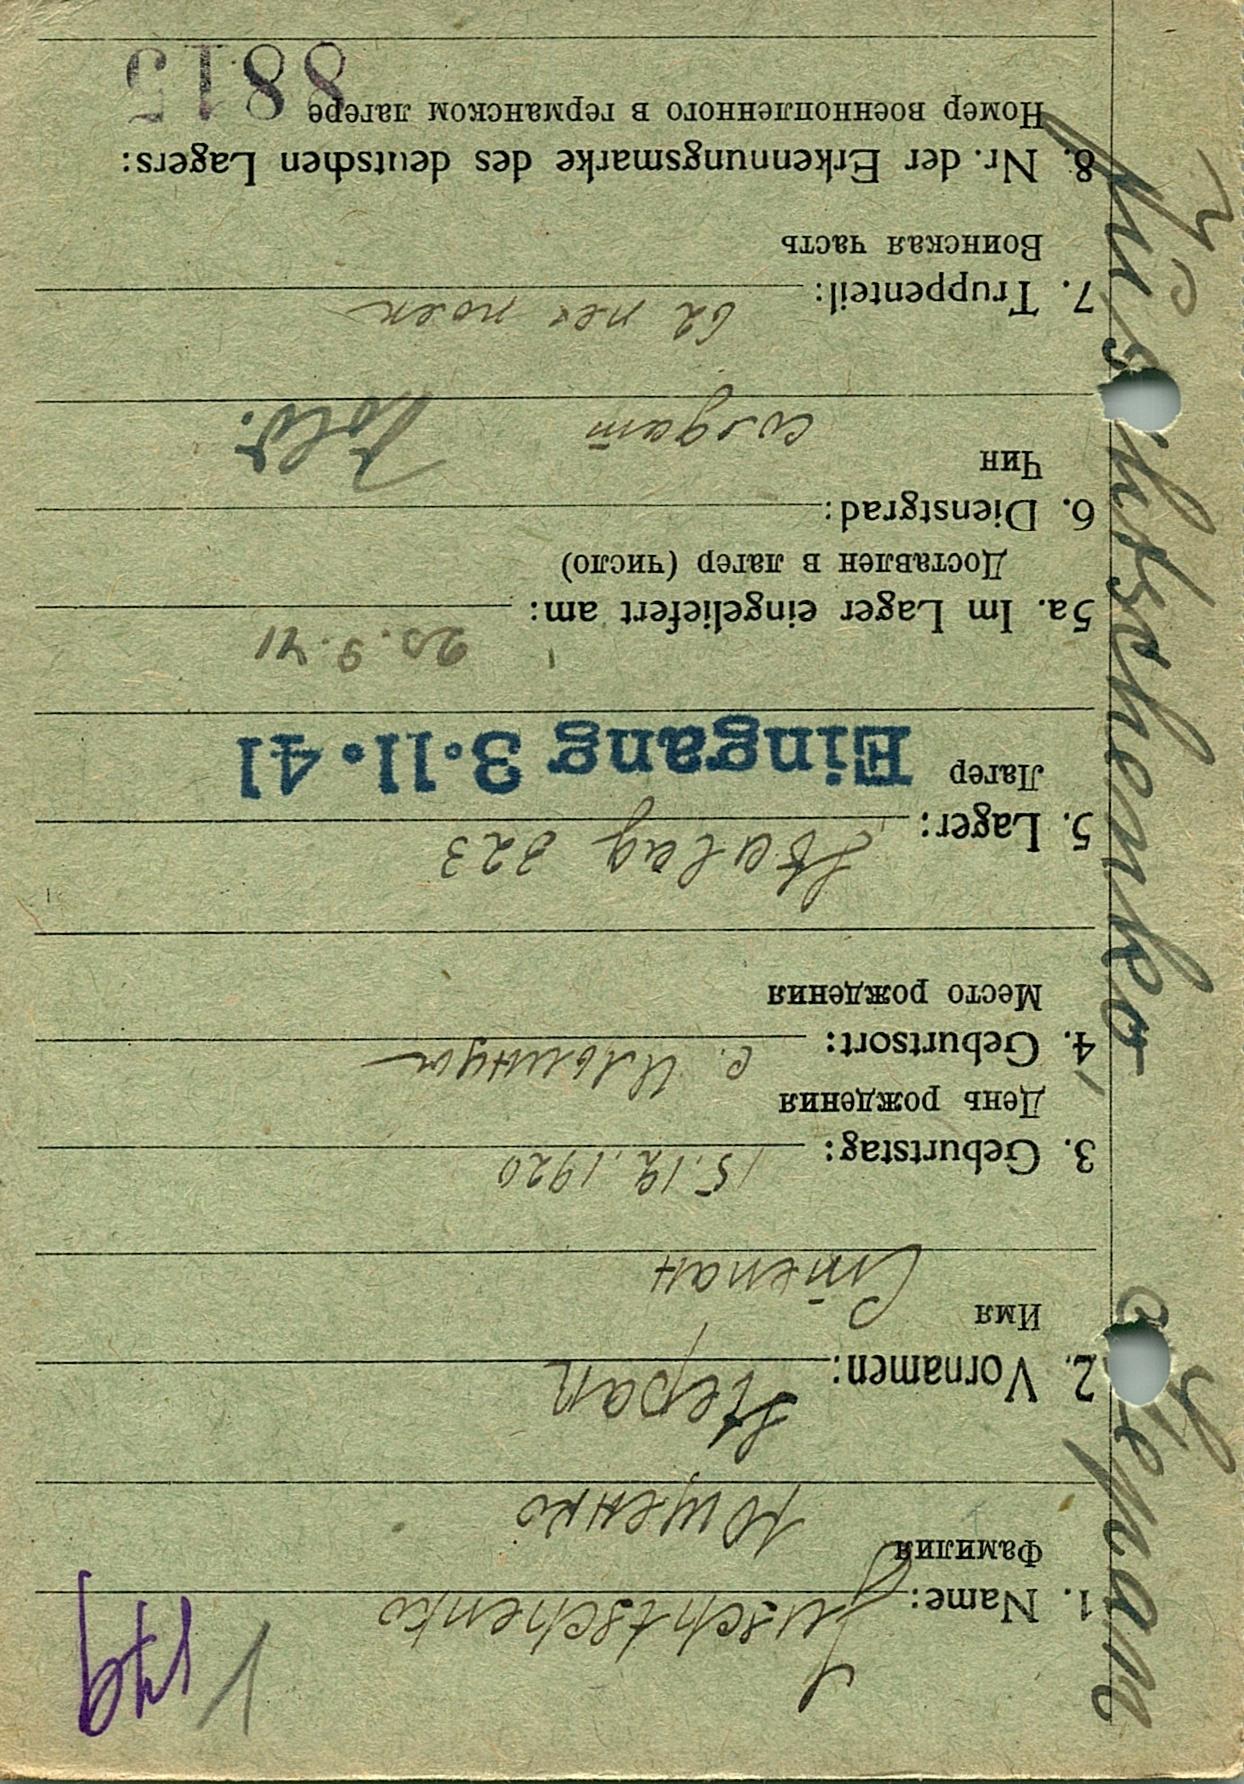 1. Name: Juschtschenko
Фамилия Ющенко
2. Vornamen: Stepan
Имя Степан
3. Geburtstag: 15.12.1920
День рождения
4. Geburtsort: с.
Место рождения
5. Lager: Stalag 323
Лагер Eingang 3·11·41
5a. Im Lager eingeliefert am: 20.9.41
Доставлен в лагер (число)
6. Dienstgrad:
Чин солдат Sold.
7. Truppenteil: 62
Воинская часть
8. Nr. der Erkennungsmarke des deutschen Lagers:
Номер военнопленного в германском лагере 8815
Juschtschenko, Stepan